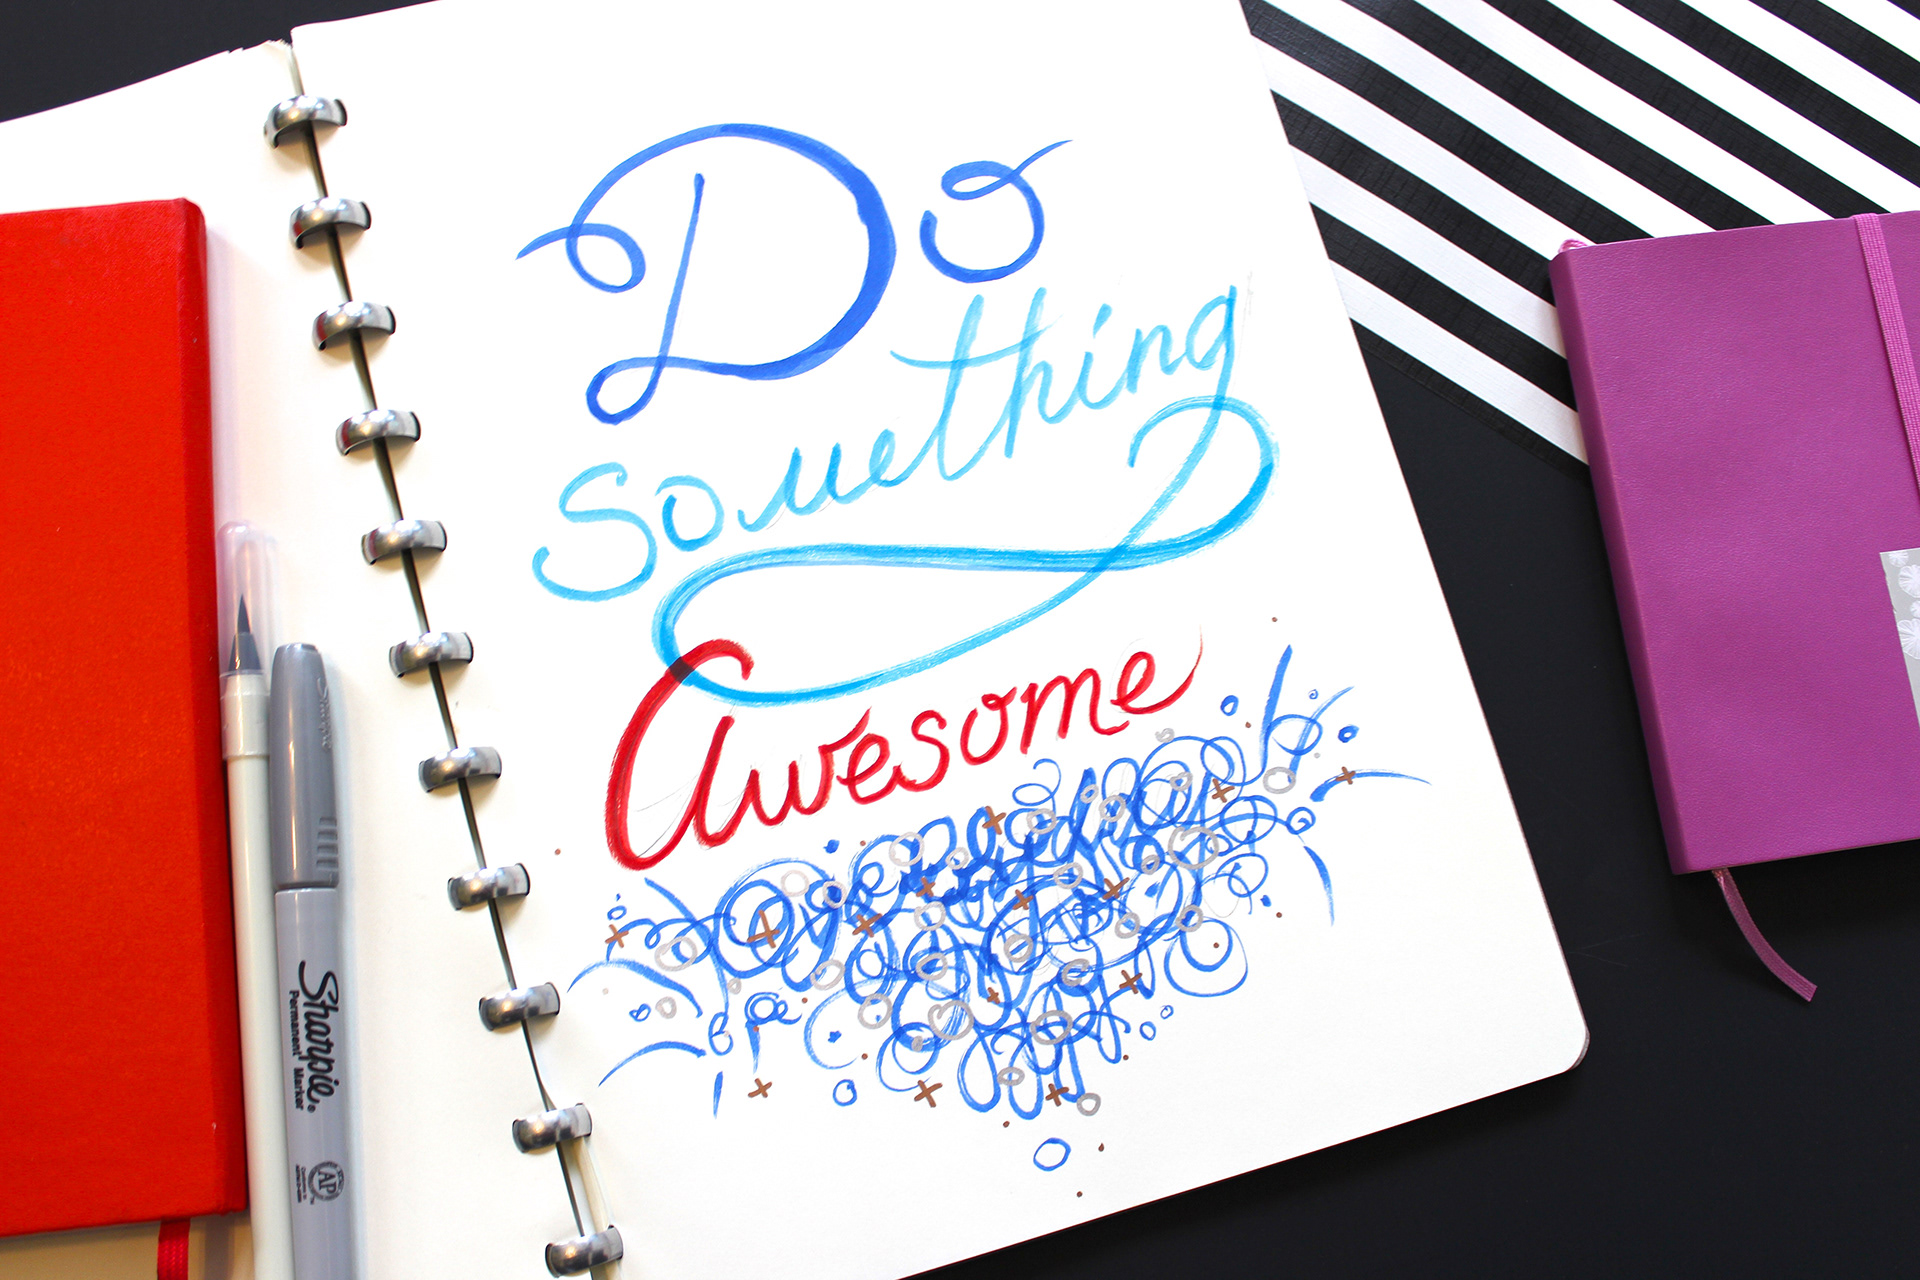 Do
Something
Awesome
Sharpie.
Permanent Marker
Sharpie
AP